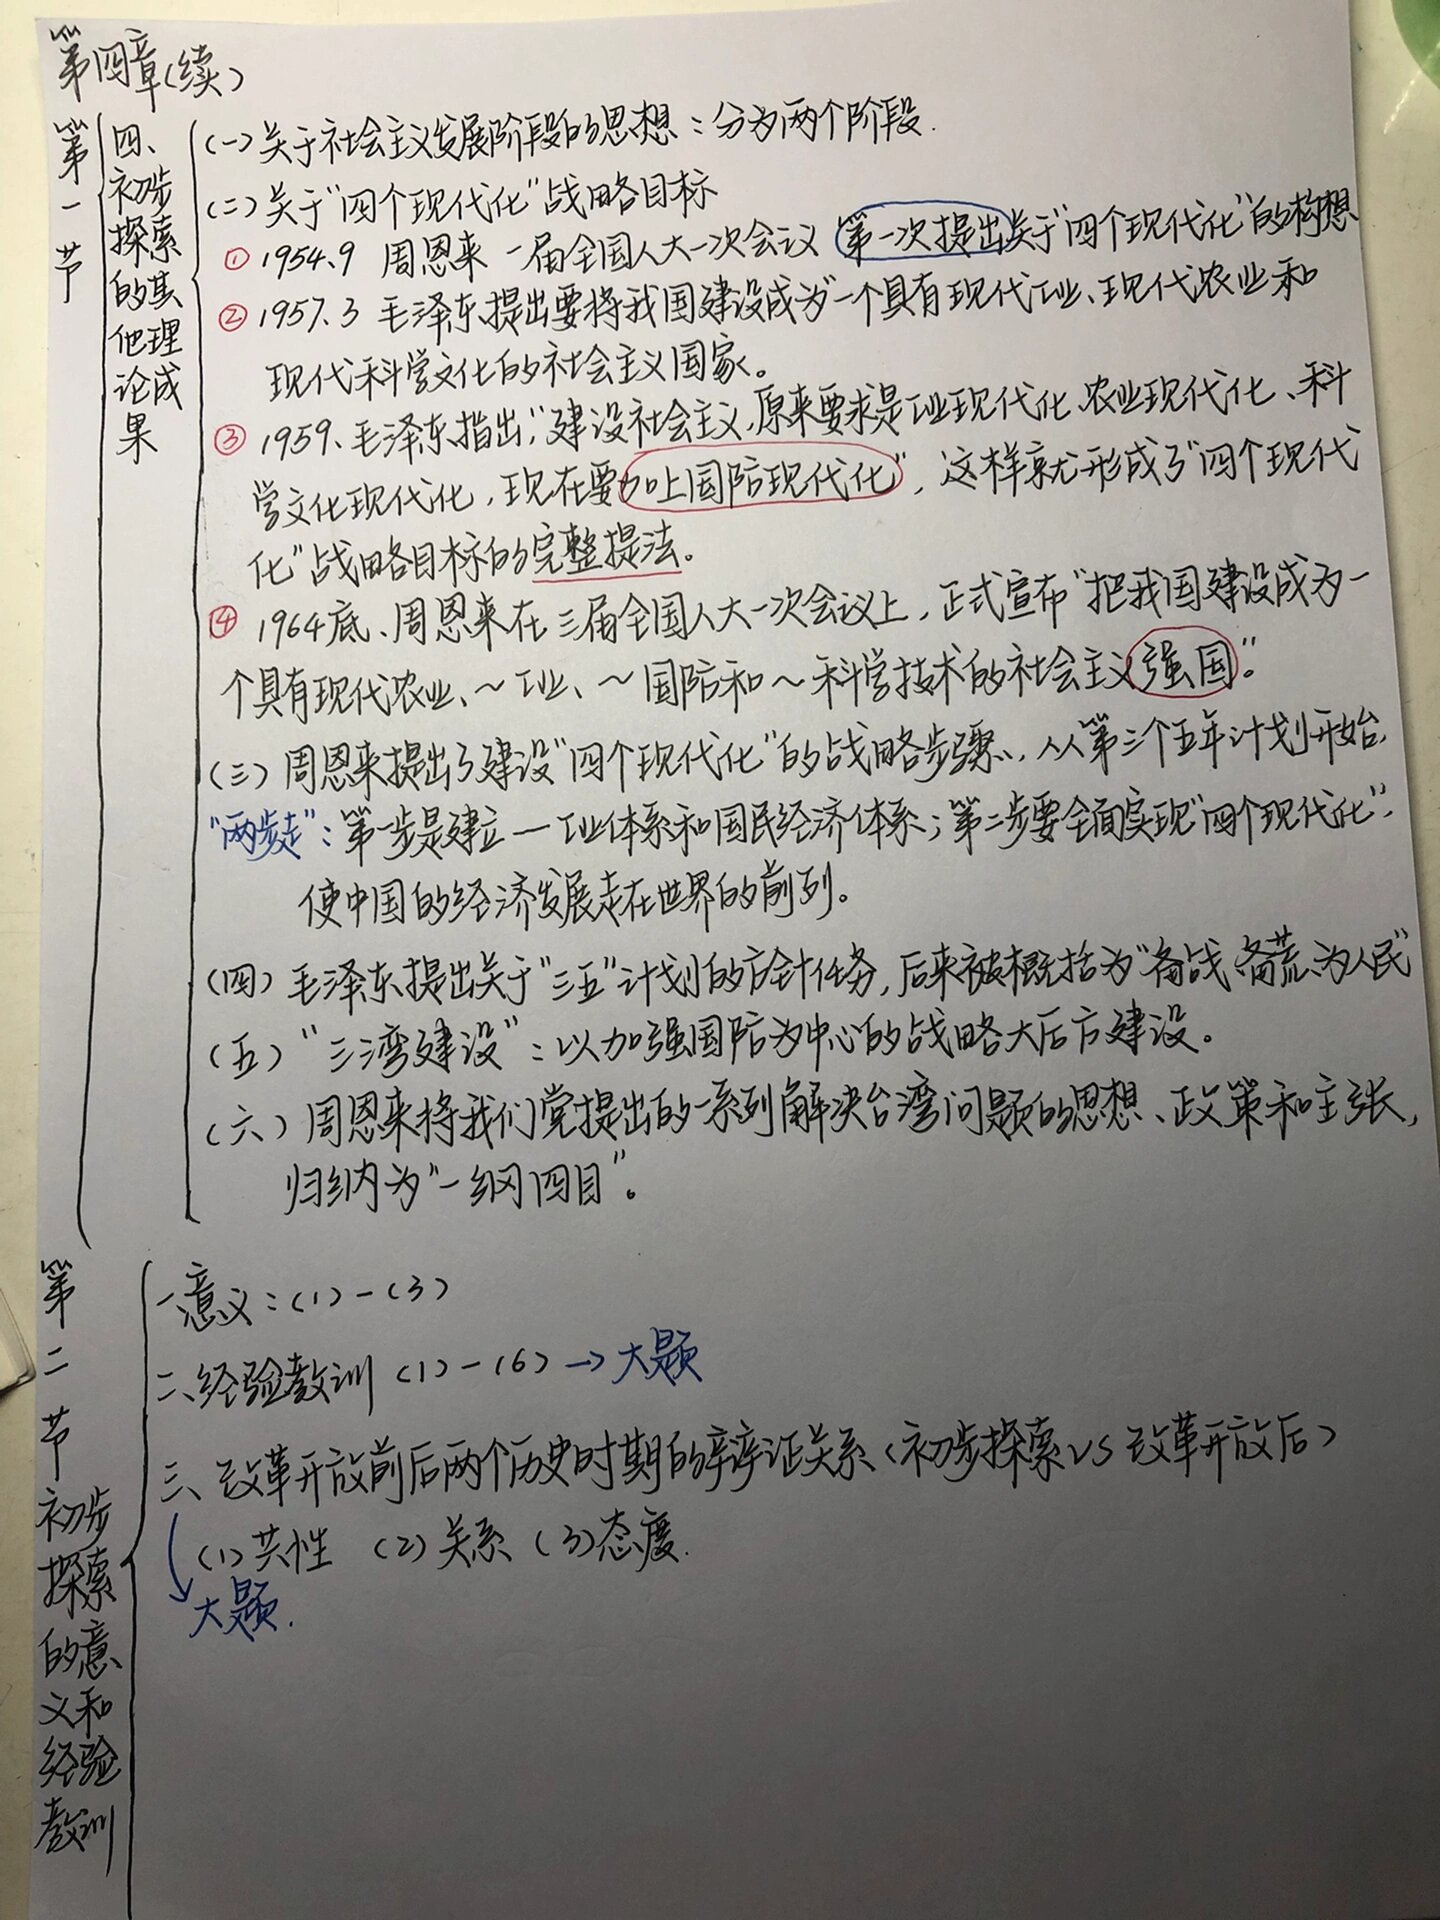 第四章(续)
第一节
四、初步探索的其他理论成果
(一)关于社会主义发展阶段的思想:分为两个阶段.
(二)关于"四个现代化"战略目标
① 1954.9 周恩来 一届全国人大一次会议 第一次提出关于"四个现代化"的构想
② 1957.3 毛泽东提出要将我国建设成为一个具有现代工业、现代农业和
现代科学文化的社会主义国家。
③ 1959、毛泽东指出,"建设社会主义,原来要求是工业现代化、农业现代化、科
学文化现代化,现在要加上国防现代化",这样就形成了"四个现代
化"战略目标的完整提法。
④ 1964底、周恩来在三届全国人大一次会议上,正式宣布"把我国建设成为一
个具有现代农业、~工业、~国防和~科学技术的社会主义强国"。
(三)周恩来提出了建设"四个现代化"的战略步骤,从第三个五年计划开始,
"两步走":第一步是建立一工业体系和国民经济体系;第二步要全面实现"四个现代化",
使中国的经济发展走在世界的前列。
(四)毛泽东提出关于"三五"计划的方针任务,后来被概括为"备战、备荒、为人民"
(五)"三湾建设":以加强国防为中心的战略大后方建设。
(六)周恩来将我们党提出的一系列解决台湾问题的思想、政策和主张,
归纳为"一纲四目"。
第二节 初步探索的意义和经验教训
一、意义:(1)-(3)
二、经验教训 (1)-(6)→大题
三、改革开放前后两个历史时期的辩证关系(初步探索VS改革开放后)
(1)共性 (2)关系 (3)态度.
大题.